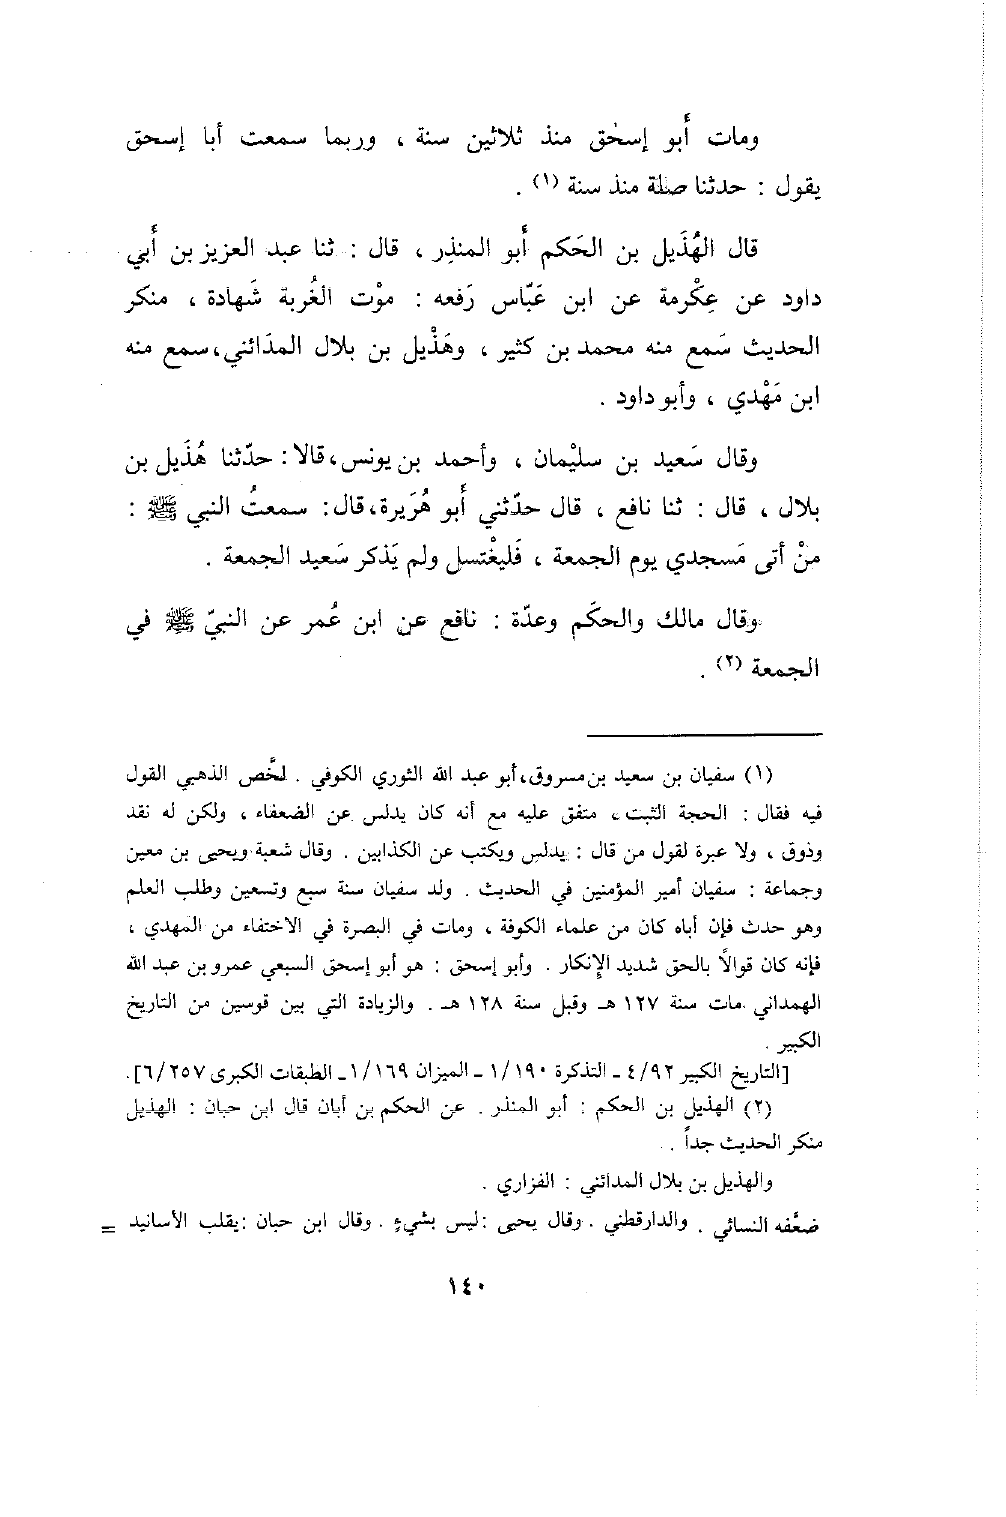 ومات أَبو إسحٰق منذ ثلاثين سنة ، وربما سمعت أبا إسحق
يقول : حدثنا صلة منذ سنة (١) .
قال الهُذَيل بن الحَكم أَبو المنذِر ، قال : ثنا عبد العزيز بن أَبي
داود عن عِكْرمة عن ابن عَبّاس رَفعه : موْت الغُربة شَهادة ، منكر
الحديث سَمع منه محمد بن كثير ، وهَذْيل بن بلال المدَائني، سمع منه
ابن مَهْدي ، وأبو داود .
وقال سَعيد بن سليْمان ، وأحمد بن يونس، قالا : حدّثنا هُذَيل بن
بلال ، قال : ثنا نافع ، قال حدّثني أَبو هُرَيرة، قال : سمعتُ النبي ﷺ :
منْ أتى مَسجدي يوم الجمعة ، فَليغْتسل ولم يَذكر سَعيد الجمعة .
وقال مالك والحكَم وعدّة : نافع عن ابن عُمر عن النبيّ ﷺ في
الجمعة (٢) .
(١) سفيان بن سعيد بن مسروق، أبو عبد الله الثوري الكوفي . لخَّص الذهبي القول
فيه فقال : الحجة الثبت ، متفق عليه مع أنه كان يدلس عن الضعفاء ، ولكن له نقد
وذوق ، ولا عبرة لقول من قال : يدلس ويكتب عن الكذابين . وقال شعبة ويحيى بن معين
وجماعة : سفيان أمير المؤمنين في الحديث . ولد سفيان سنة سبع وتسعين وطلب العلم
وهو حدث فإن أباه كان من علماء الكوفة ، ومات في البصرة في الاختفاء من المهدي ،
فإنه كان قوالاً بالحق شديد الإنكار . وأبو إسحق : هو أبو إسحق السبعي عمرو بن عبد الله
الهمداني مات سنة ١٢٧ هـ وقبل سنة ١٢٨ هـ . والزيادة التي بين قوسين من التاريخ
الكبير .
[التاريخ الكبير ٤/٩٢ ـ التذكرة ١/١٩٠ ـ الميزان ١/١٦٩ ـ الطبقات الكبرى ٦/٢٥٧].
(٢) الهذيل بن الحكم : أبو المنذر . عن الحكم بن أبان قال ابن حبان : الهذيل
منكر الحديث جداً .
والهذيل بن بلال المدائني : الفزاري .
ضعَّفه النسائي . والدارقطني . وقال يحيى : ليس بشيءٍ . وقال ابن حبان : يقلب الأسانيد =
١٤٠